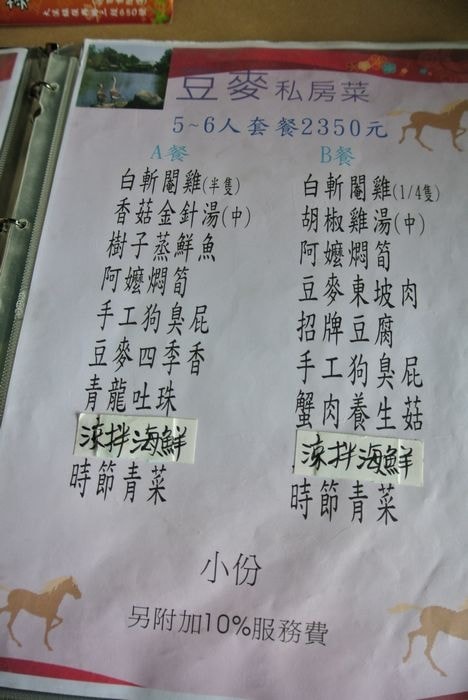 豆麥私房菜
5~6人套餐2350元
A餐
白斬閹雞(半隻)
香菇金針湯(中)
樹子蒸鮮魚
阿嬤燜筍
手工狗臭屁
豆麥四季香
青龍吐珠
涼拌海鮮
時節青菜
B餐
白斬閹雞(1/4隻)
胡椒雞湯(中)
阿嬤燜筍
豆麥東坡肉
招牌豆腐
手工狗臭屁
蟹肉養生菇
涼拌海鮮
時節青菜
小份
另附加10%服務費